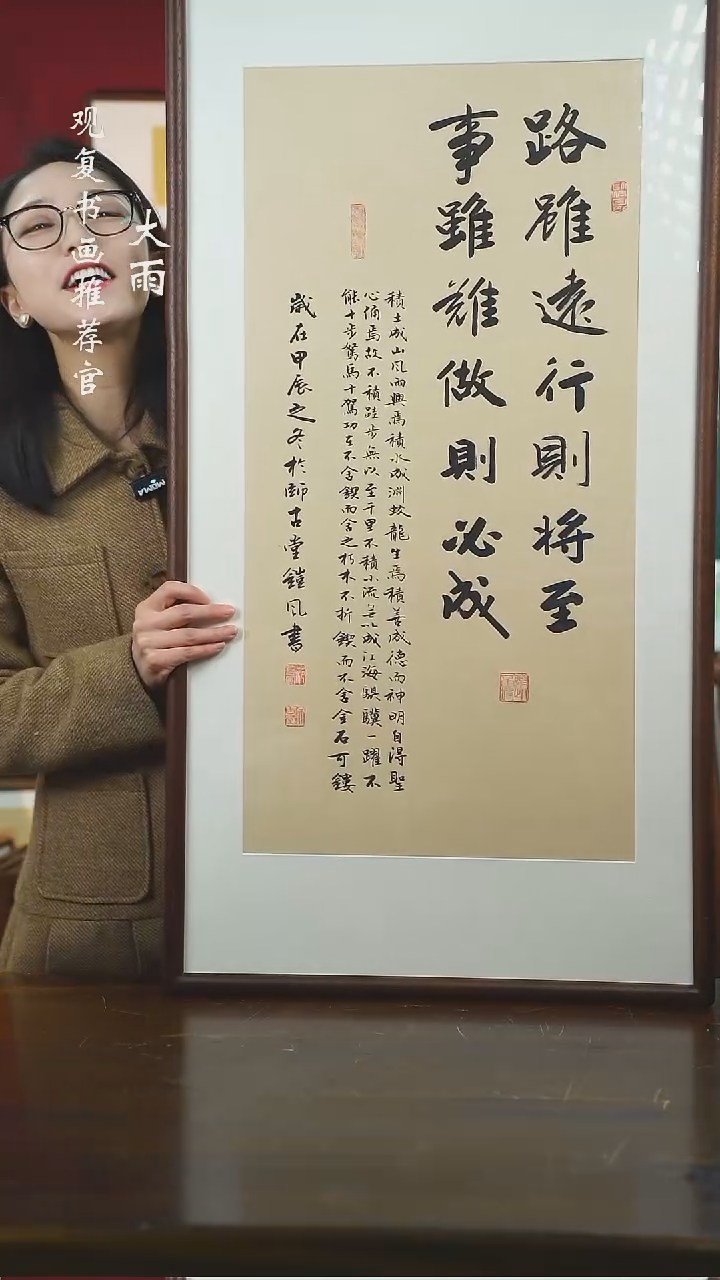 观复书画推荐官
大雨
路雖遠行則將至
事雖難做則必成
積土成山風雨興焉積水成淵蛟龍生焉積善成德而神明自得聖
心備焉故不積跬步無以至千里不積小流無以成江海騏驥一躍不
能十步駑馬十駕功在不舍鍥而舍之朽木不折鍥而不舍金石可鏤
歲在甲辰之冬於師古堂鎧風書